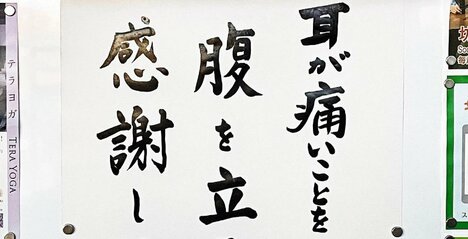 耳が痛いことを
腹を立
感謝し
テラヨガ TERA YOGA